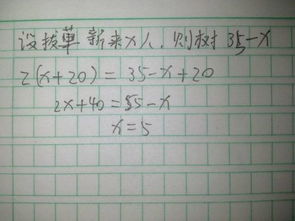 设拔草新来x人,则树35-x
2(x+20)=35-x+20
2x+40=55-x
x=5